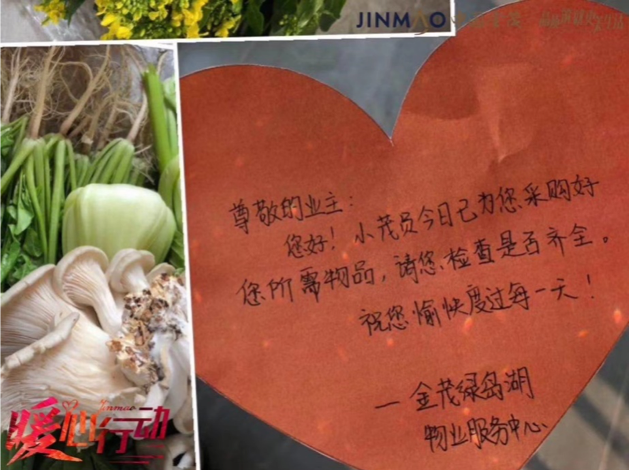 JINMAO
尊敬的业主：
您好！小茂员今日已为您采购好
您所需物品，请您检查是否齐全。
祝您愉快度过每一天！
—金茂绿岛湖
物业服务中心
Jinmao
暖心行动